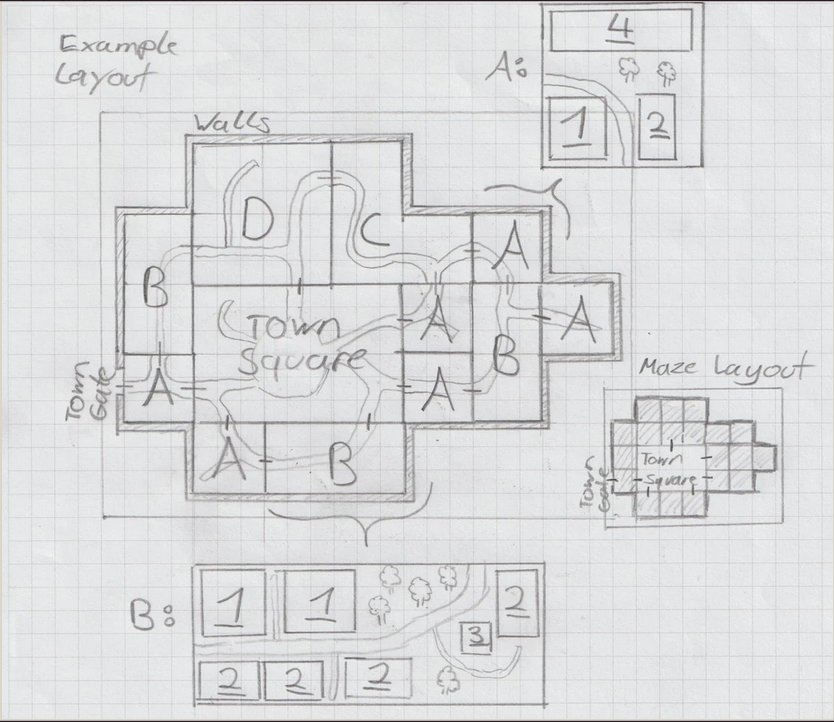 Example
Layout
A:
4
1
2
Walls
D
C
A
B
Town
Square
A
B
A
Town
Gate
A
A
A
B
Maze Layout
Town
Square
Town
Gate
B:
1
1
2
3
2
2
2